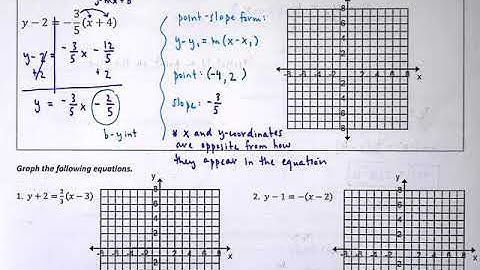 y - 2 = -3/5(x + 4)
y - 2 = -3/5x - 12/5
+2 + 2
y = -3/5x - 2/5
b-yint
point-slope form:
y-y₁ = m(x-x₁)
point: (-4, 2)
slope: -3/5
* x and y-coordinates
are opposite from how
they appear in the equation
x
Graph the following equations.
1. y + 2 = 2/3(x - 3)
y
x
2. y - 1 = -(x - 2)
y
x